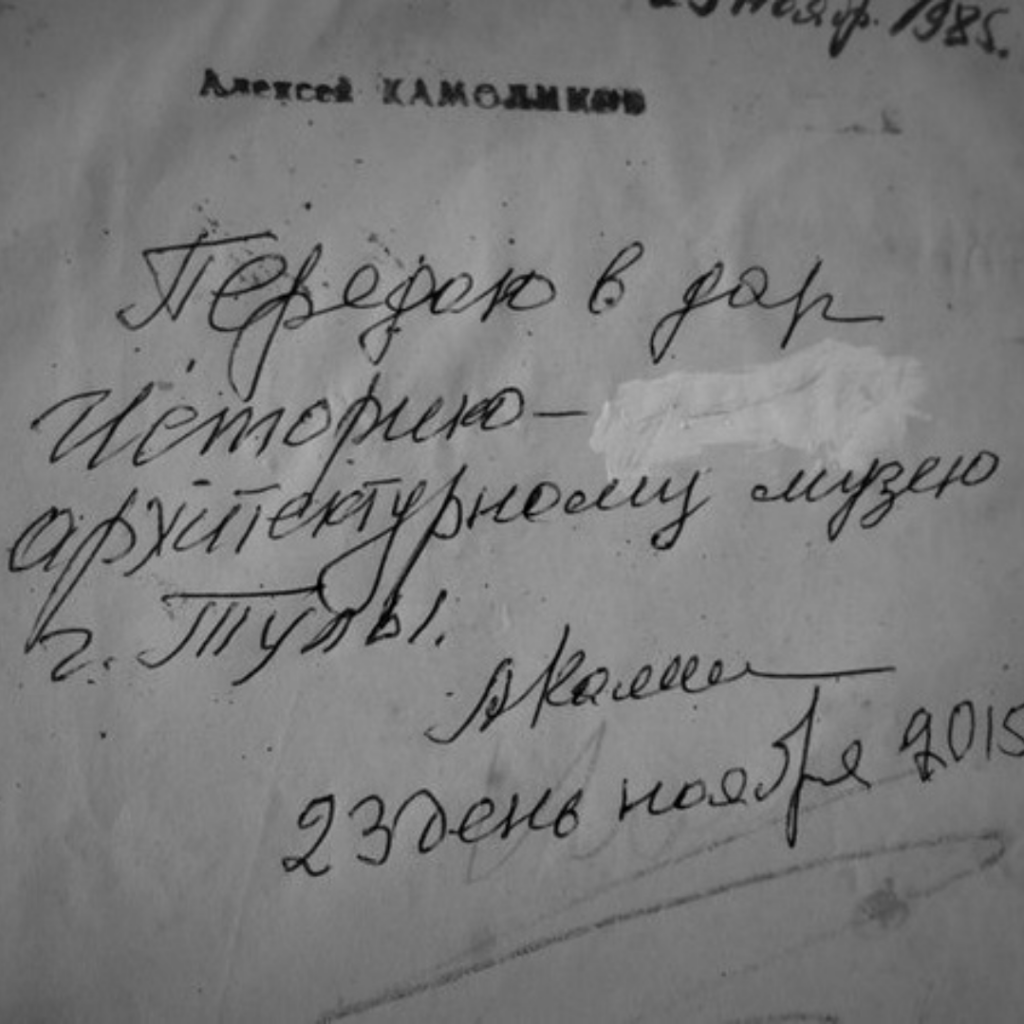 ноябр. 1985.
Алексей КАМОЛИКОВ
Передаю в дар
Историко-
архитектурному музею
г. Тулы.
23 день ноября 2015